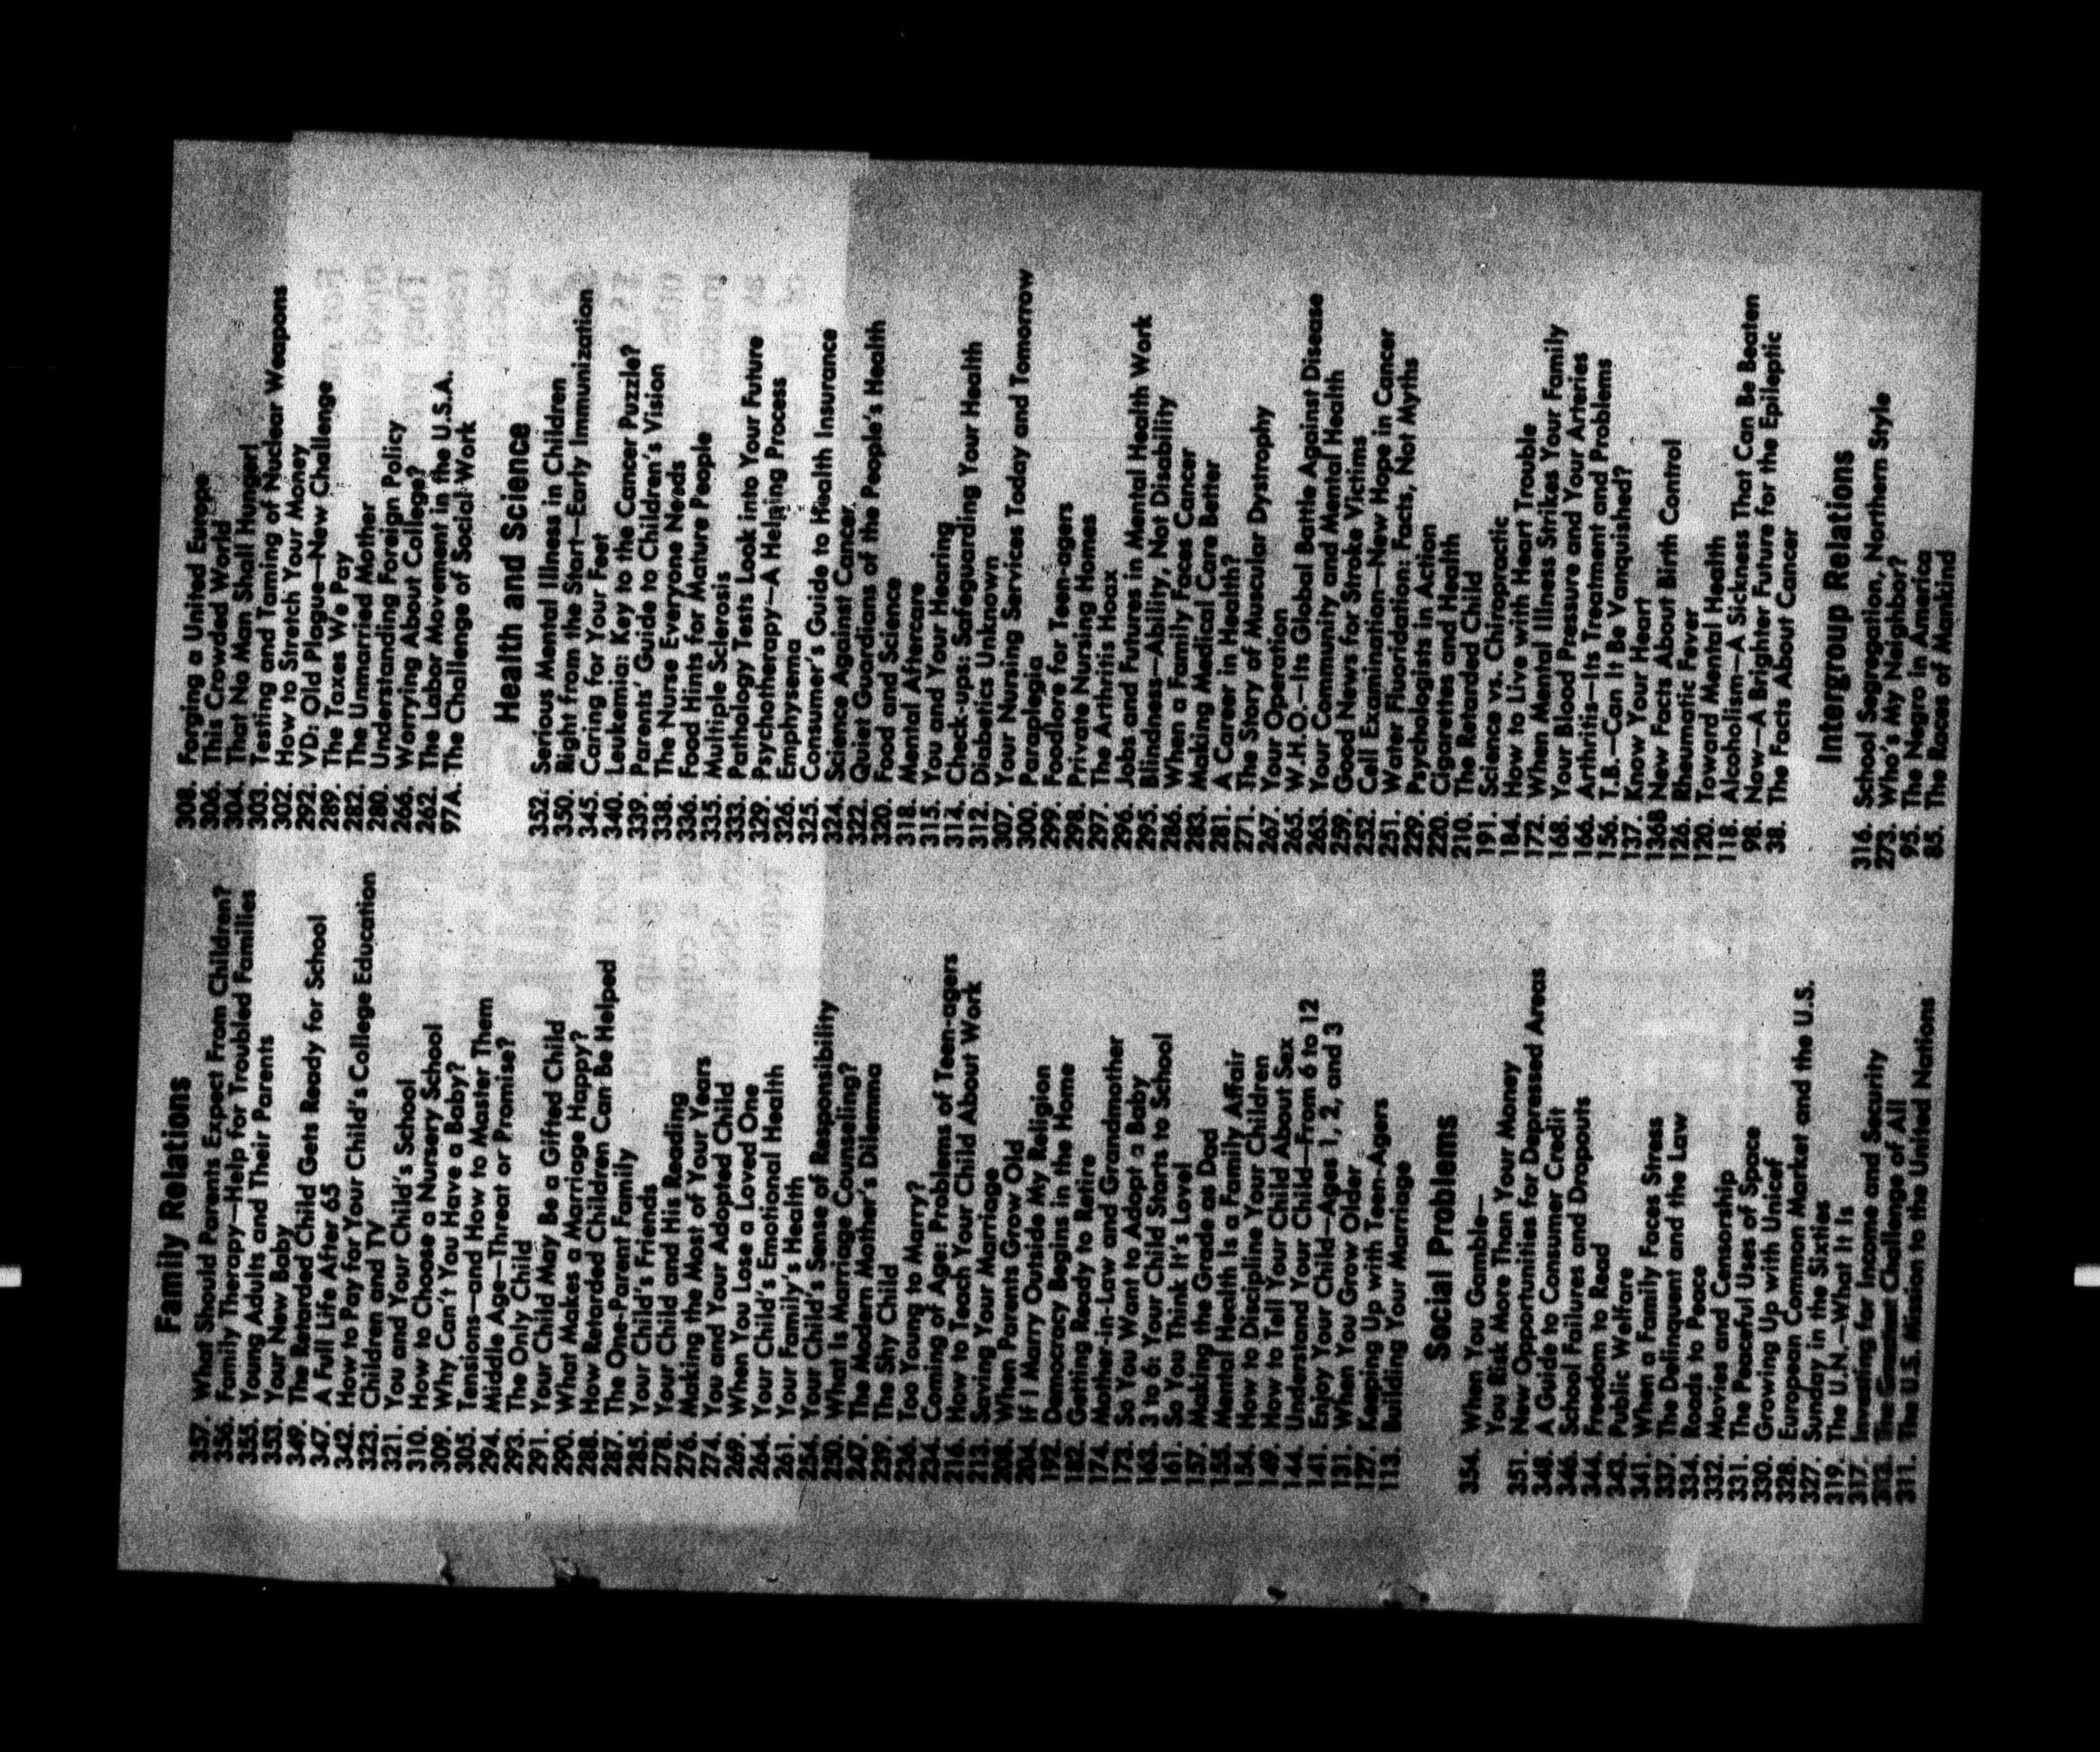 Family Relations
357. What Should Parents Expect From Children?
356. Family Therapy—Help for Troubled Families
355. Young Adults and Their Parents
353. Your New Baby
349. The Retarded Child Gets Ready for School
347. A Full Life After 65
342. How to Pay for Your Child's College Education
323. Children and TV
321. You and Your Child's School
310. How to Choose a Nursery School
309. Why Can't You Have a Baby?
305. Tensions—and How to Master Them
294. Middle Age—Threat or Promise?
293. The Only Child
291. Your Child May Be a Gifted Child
290. What Makes a Marriage Happy?
288. How Retarded Children Can Be Helped
287. The One-Parent Family
285. Your Child's Friends
278. Your Child and His Reading
276. Making the Most of Your Years
274. You and Your Adopted Child
269. When You Lose a Loved One
264. Your Child's Emotional Health
261. Your Family's Health
254. Your Child's Sense of Responsibility
250. What Is Marriage Counseling?
247. The Modern Mother's Dilemma
239. The Shy Child
236. Too Young to Marry?
234. Coming of Age: Problems of Teen-agers
216. How to Teach Your Child About Work
213. Saving Your Marriage
208. When Parents Grow Old
204. If I Marry Outside My Religion
192. Democracy Begins in the Home
182. Getting Ready to Retire
174. Mother-in-Law and Grandmother
173. So You Want to Adopt a Baby
163. 3 to 6: Your Child Starts to School
161. So You Think It's Love!
157. Making the Grade as Dad
155. Mental Health Is a Family Affair
154. How to Discipline Your Children
149. How to Tell Your Child About Sex
144. Understand Your Child—From 6 to 12
141. Enjoy Your Child—Ages 1, 2, and 3
131. When You Grow Older
127. Keeping Up with Teen-Agers
113. Building Your Marriage
Social Problems
354. When You Gamble—
You Risk More Than Your Money
351. New Opportunities for Depressed Areas
348. A Guide to Consumer Credit
346. School Failures and Dropouts
344. Freedom to Read
343. Public Welfare
341. When a Family Faces Stress
337. The Delinquent and the Law
334. Roads to Peace
332. Movies and Censorship
331. The Peaceful Uses of Space
330. Growing Up with Unicef
328. European Common Market and the U.S.
327. Sunday in the Sixties
319. The U.N.—What It Is
317. Investing for Income and Security
313. The Challenge of All
311. The U.S. Mission to the United Nations
308. Forging a United Europe
306. This Crowded World
304. That No Man Shall Hunger!
303. Testing and Taming of Nuclear Weapons
302. How to Stretch Your Money
292. VD: Old Plague—New Challenge
289. The Taxes We Pay
282. The Unmarried Mother
280. Understanding Foreign Policy
266. Worrying About College?
262. The Labor Movement in the U.S.A.
97A. The Challenge of Social Work
Health and Science
352. Serious Mental Illness in Children
350. Right from the Start—Early Immunization
345. Caring for Your Feet
340. Leukemia: Key to the Cancer Puzzle?
339. Parents' Guide to Children's Vision
338. The Nurse Everyone Needs
336. Food Hints for Mature People
335. Multiple Sclerosis
333. Pathology Tests Look into Your Future
329. Psychotherapy—A Helping Process
326. Emphysema
325. Consumer's Guide to Health Insurance
324. Science Against Cancer
322. Quiet Guardians of the People's Health
320. Food and Science
318. Mental Aftercare
315. You and Your Hearing
314. Check-ups: Safeguarding Your Health
312. Diabetics Unknown
307. Your Nursing Services Today and Tomorrow
300. Paraplegia
299. Foodlore for Teen-agers
298. Private Nursing Homes
297. The Arthritis Hoax
296. Jobs and Futures in Mental Health Work
295. Blindness—Ability, Not Disability
286. When a Family Faces Cancer
283. Making Medical Care Better
281. A Career in Health?
271. The Story of Muscular Dystrophy
267. Your Operation
265. W.H.O.—Its Global Battle Against Disease
263. Your Community and Mental Health
259. Good News for Stroke Victims
252. Cell Examination—New Hope in Cancer
251. Water Fluoridation: Facts, Not Myths
229. Psychologists in Action
220. Cigarettes and Health
210. The Retarded Child
191. Science vs. Chiropractic
184. How to Live with Heart Trouble
172. When Mental Illness Strikes Your Family
168. Your Blood Pressure and Your Arteries
166. Arthritis—Its Treatment and Problems
156. T.B.—Can It Be Vanquished?
137. Know Your Heart
136B New Facts About Birth Control
126. Rheumatic Fever
120. Toward Mental Heath
118. Alcoholism—A Sickness That Can Be Beaten
98. Now—A Brighter Future for the Epileptic
38. The Facts About Cancer
Intergroup Relations
316. School Segregation, Northern Style
273. Who's My Neighbor?
95. The Negro in America
85. The Races of Mankind